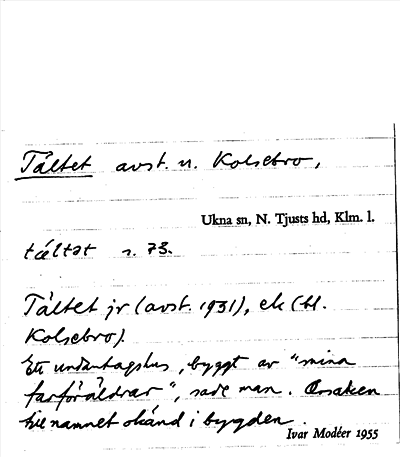 Tältet avst. u. Kolsebro,
Ukna sn, N. Tjusts hd, Klm. l.
tältət s. 73.
Tältet jr (avst. 1931), ek (bl.
Kolsebro).
Ett undantagshus, byggt av "mina
farföräldrar", sade man. Orsaken
till namnet okänd i bygden.
Ivar Modéer 1955